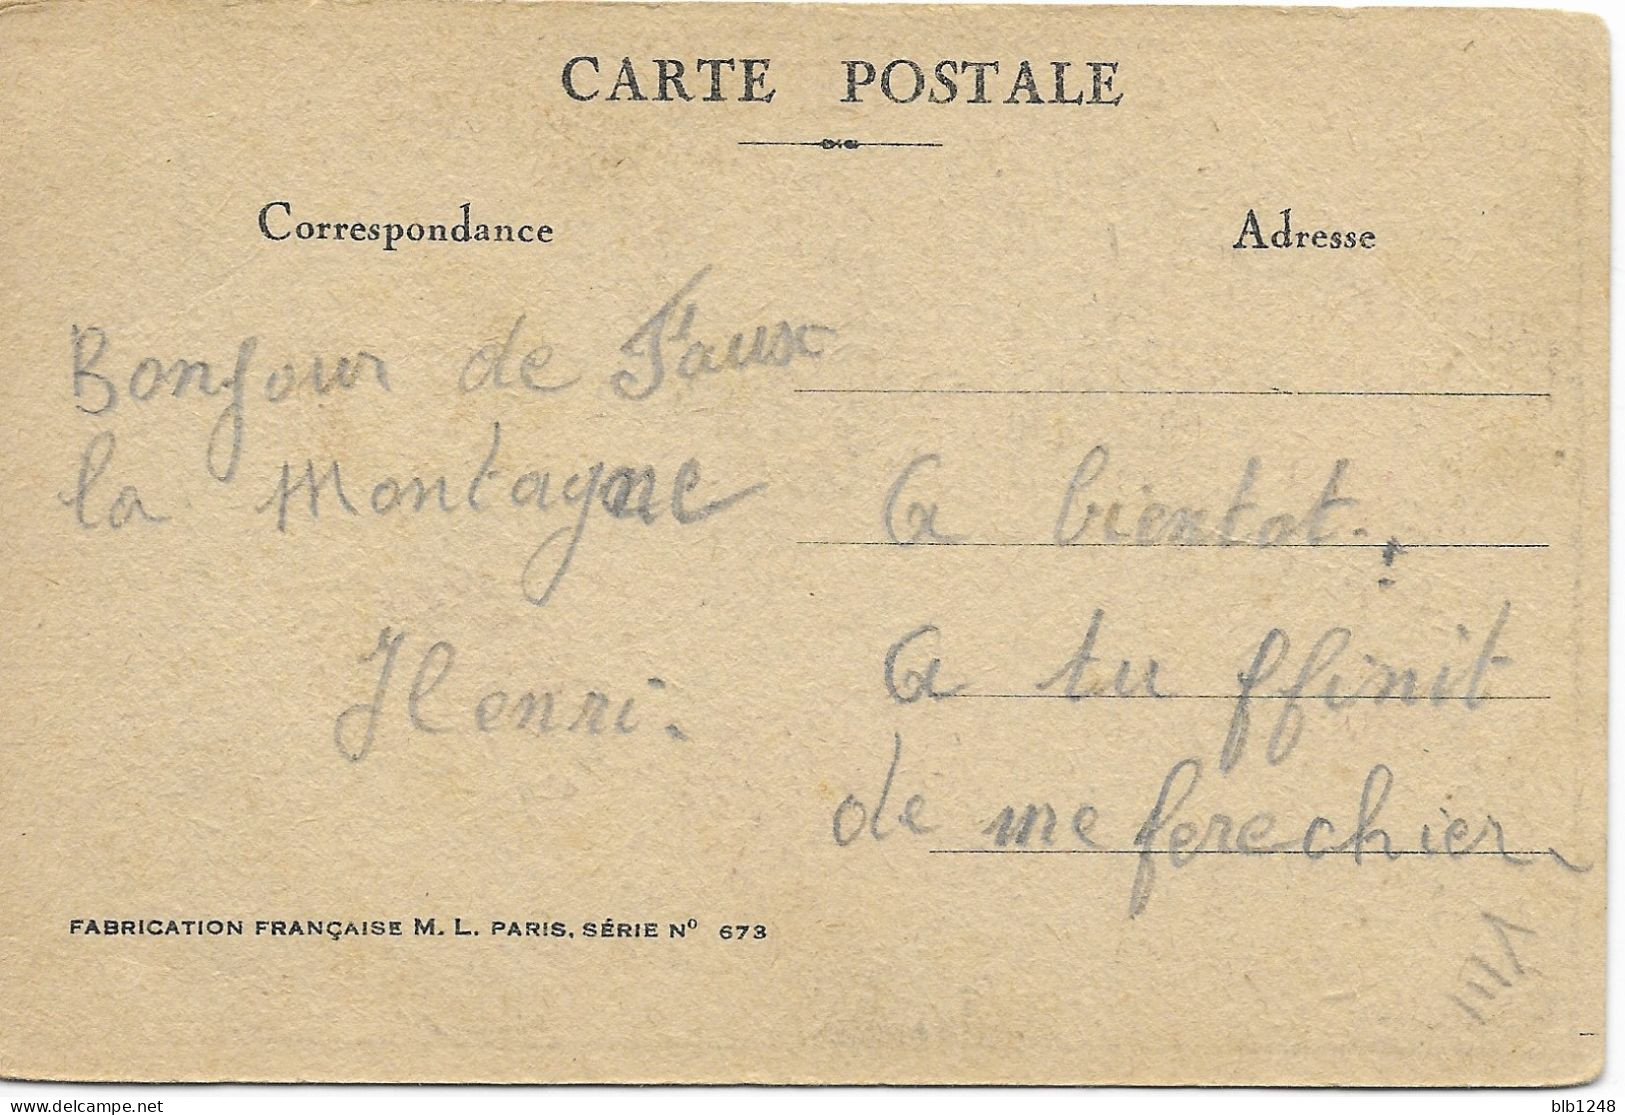 CARTE POSTALE
Correspondance
Adresse
Bonjour de Faux
la Montagne
Henri.
A bientot.!
A tu ffinit
de me ferechier.
FABRICATION FRANÇAISE M. L. PARIS, SÉRIE Nº 673
delcampe.net
blb1248